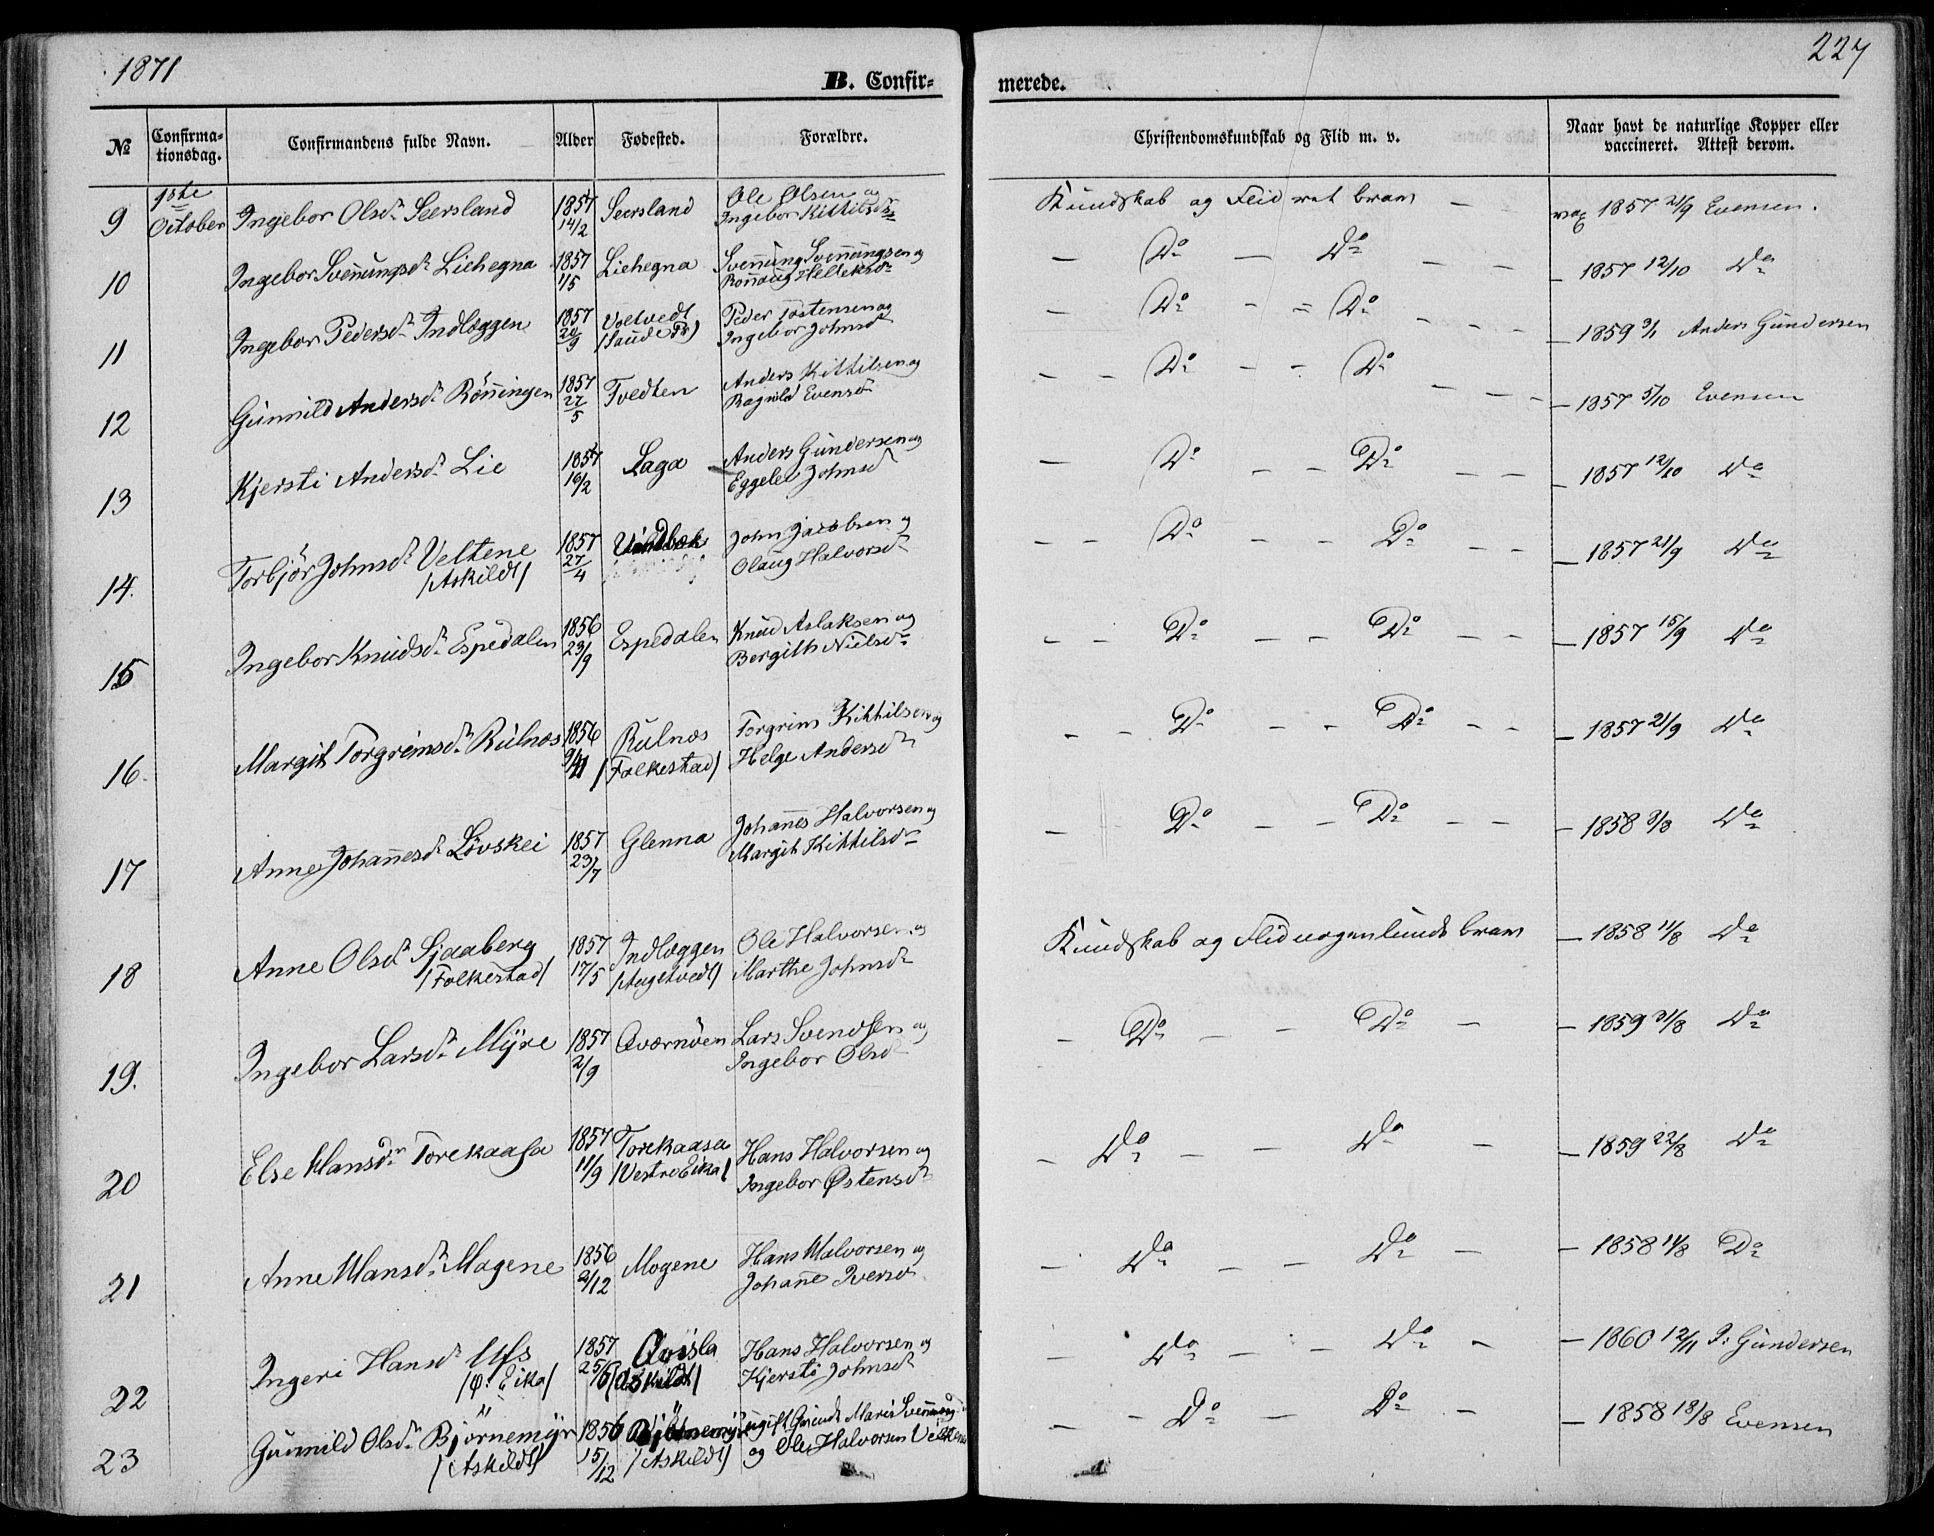 1871
B. Confir-
merede.
227
№ Confirma-tionsdag. Confirmandens fulde Navn. Alder Fødested. Forældre. Christendomskundskab og Flid m. v. Naar havt de naturlige Kopper eller vaccineret. Attest derom.
9 1ste October Ingebor Olsd. Seersland 1857 14/2 Seersland Ole Olsen og Ingebor Kittilsd. Kundskab og Flid ret brav vac 1857 21/9 Evensen.
10 Ingebor Svennungsd. Liehegna 1857 1/5 Liehegna Svennung Svennungsen og Ronnaug Helleksd. – Do – Do – – – 1857 12/10 Do
11 Ingebor Pedersd. Indlæggen 1857 20/9 (Saude Pr) Peder Tostensen og Ingebor Johnsd – Do – = Do – – – 1859 Anders Gundersen
12 Gunnild Andersd. Rönningen 1857 22/5 Tvedten Anders Kittilsen og Ragnild Evensd. – – Do – – Do – – – 1857 5/10 Evensen
13 Kjersti Andersd. Lie 1857 16/2 Laga Anders Gundersen og Johnsd – Do – – Do – – – 1857 12/10 Do
14. Torbjör Johnsd. Veltene /Askildt/ 1857 27/4 John Jacobsen og Olaug Halvorsd. – – Do – – Do – – – 1857 21/9 Do
15 Ingebor Knudsd. Espedalen 1856 23/9 Espedalen Knud Aslaksen og Bergith Nielsd. – – Do – – Do – – – 1857 15/9 Do
16. Margit Torgrimsd. Rulnæs 1856 Rulnæs /Folkestad/ Torgrim Kittilsen og Helge Andersd. – – Do – – Do – – – 1857 21/9 Do
17 Anne Johannesd. Lövskei 1857 23/7 Glenna Johannes Halvorsen og Margit Kittilsd. – Do – – Do – – – 1858 Do
18 Anne Olsd. Sjaaberg /Folkestad/ 1857 17/5 Indlæggen Ole Halvorsen og Marthe Johnsd. Kundskab og Flid nogenlunde brav – 1858 11/8 Do
19. Ingebor Larsd. Myre 1857 2/9 Qværnöen Lars Svendsen og Ingebor Olsd – Do – – Do – – 1859 31/8 Do
20 Else Hansd. Torekaasa 1857 11/9 Torekaasa /Vestre Eika/ Hans Halvorsen og Ingebor Østensd. – Do – – Do – – 1859 22/8 Do
21 Anne Hansd. Mogene 1856 2/12 Mogene Hans Halvorsen og Johanne Iversd. – Do – – Do – – 1858 11/8 Do
22 Ingeri Hansd. Ufs /ö. Eika/ 1857 25/6 Qvisla /Askildt/ Hans Halvorsen og Kjersti Johnsd. – Do – – Do – – 1860 12/11 Gundersen
23 Gunnild Olsd. Bjørnemyr /Askildt/ 1856 15/12 Bjørnemyr /Askildt/ ugift Maria Svennungsd. og Ole Halvorsen – – Do – Do – – 1858 18/8 Evensen